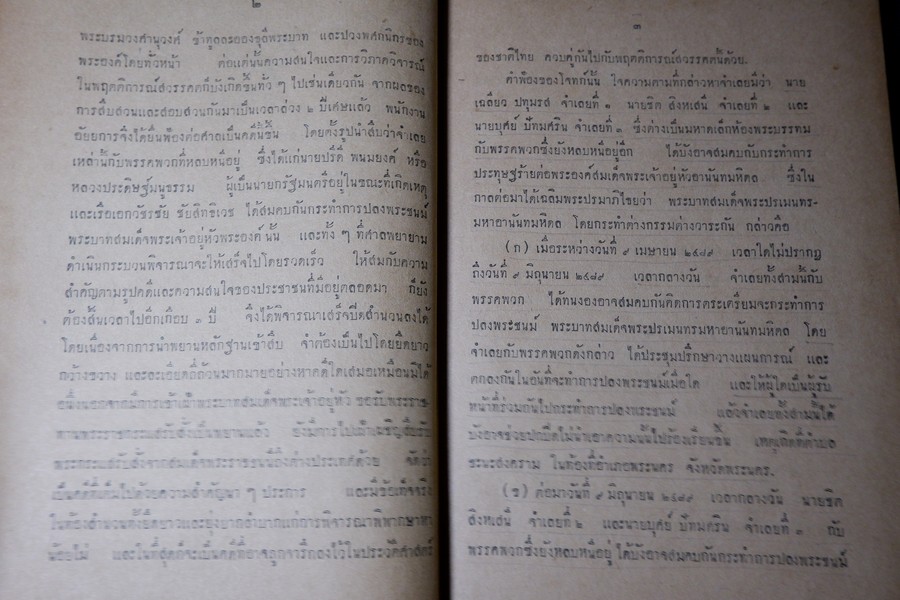 ๒
พระบรมวงศานุวงศ์ ข้าทูลละอองธุลีพระบาท และปวงพศกนิกรของ
พระองค์โดยทั่วหน้า ต่อแต่นั้นความสนใจและการวิภาควิจารณ์
ในพฤตติการณ์สวรรคตก็บังเกิดขึ้นทั่ว ๆ ไปเช่นเดียวกัน จากผลของ
การสืบสวนและสอบสวนกันมาเป็นเวลาล่วง ๒ ปีเศษแล้ว พนักงาน
อัยยการจึงได้ยื่นฟ้องต่อศาลเป็นคดีนี้ขึ้น โดยตั้งรูปนำสืบว่าจำเลย
เหล่านี้กับพรรคพวกที่หลบหนีอยู่ ซึ่งได้แก่นายปรีดี พนมยงค์ หรือ
หลวงประดิษฐ์มนูธรรม ผู้เป็นนายกรัฐมนตรีอยู่ในขณะที่เกิดเหตุ
และเรือเอกวัชรชัย ชัยสิทธิเวช ได้สมคบกันกระทำการปลงพระชนม์
พระบาทสมเด็จพระเจ้าอยู่หัวพระองค์นั้น และทั้ง ๆ ที่ศาลพยายาม
ดำเนินกระบวนพิจารณาจะให้เสร็จไปโดยรวดเร็ว ให้สมกับความ
สำคัญตามรูปคดีและความสนใจของประชาชนที่มีอยู่ตลอดมา ก็ยัง
ต้องสิ้นเวลาไปอีกเกือบ ๓ ปี จึงได้พิจารณาเสร็จปิดสำนวนลงได้
โดยเนื่องจากการนำพยานหลักฐานเข้าสืบ จำต้องเป็นไปโดยยืดยาว
กว้างขวาง และละเอียดถี่ถ้วนมากมายอย่างหาคดีใดเสมอเหมือนมิได้
ซึ่งนอกจากมีการเข้าเฝ้าพระบาทสมเด็จพระเจ้าอยู่หัว ขอรับพระราช-
ทานพระราชกระแสรับสั่งเป็นพยานแล้ว ยังมีการไปเฝ้าเผชิญสืบรับ
พระกระแสรับสั่งจากสมเด็จพระราชชนนีถึงต่างประเทศด้วย จัดว่า
เป็นคดีที่เต็มไปด้วยความสำคัญนา ๆ ประการ และมีข้อเท็จจริง
ในท้องสำนวนทั้งยืดยาวและยุ่งยากลำบากแก่การพิจารณาพิพากษาหา
น้อยไม่ และในที่สุดก็จะเป็นคดีที่อาจถูกจารึกลงไว้ในประวัติศาสตร์
๓
ของชาติไทย ควบคู่กันไปกับพฤตติการณ์สวรรคตนี้ด้วย.
คำฟ้องของโจทก์นั้น ใจความตามที่กล่าวหาจำเลยมีว่า นาย
เฉลียว ปทุมรส จำเลยที่ ๑ นายชิต สิงหเสนี จำเลยที่ ๒ และ
นายบุศย์ ปัทมศริน จำเลยที่ ๓ ซึ่งต่างเป็นมหาดเล็กห้องพระบรรทม
กับพรรคพวกซึ่งยังหลบหนีอยู่อีก ได้บังอาจสมคบกับกระทำการ
ประทุษฐร้ายต่อพระองค์สมเด็จพระเจ้าอยู่หัวอานันทมหิดล ซึ่งใน
กาลต่อมาได้เฉลิมพระปรมาภิไธยว่า พระบาทสมเด็จพระปรเมนทร-
มหาอานันทมหิดล โดยกระทำต่างกรรมต่างวาระกัน กล่าวคือ
(ก) เมื่อระหว่างวันที่ ๙ เมษายน ๒๔๘๙ เวลาใดไม่ปรากฏ
ถึงวันที่ ๙ มิถุนายน ๒๔๘๙ เวลากลางวัน จำเลยทั้งสามนี้กับ
พรรคพวก ได้ทนงองอาจสมคบกันคิดการตระเตรียมจะกระทำการ
ปลงพระชนม์ พระบาทสมเด็จพระปรเมนทรมหาอานันทมหิดล โดย
จำเลยกับพรรคพวกดังกล่าว ได้ประชุมปรึกษาวางแผนการณ์ และ
ตกลงกันในอันที่จะทำการปลงพระชนม์เมื่อใด และให้ผู้ใดเป็นผู้รับ
หน้าที่ร่วมกันไปกระทำการปลงพระชนม์ แล้วจำเลยทั้งสามนี้ได้
บังอาจช่วยปกปิดไม่นำเอาความนั้นไปร้องเรียนขึ้น เหตุเกิดที่ตำบล
ชนะสงคราม ในท้องที่อำเภอพระนคร จังหวัดพระนคร.
(ข) ต่อมาวันที่ ๙ มิถุนายน ๒๔๘๙ เวลากลางวัน นายชิต
สิงหเสนี จำเลยที่ ๒ และนายบุศย์ ปัทมศริน จำเลยที่ ๓ กับ
พรรคพวกซึ่งยังหลบหนีอยู่ ได้บังอาจสมคบกันกระทำการปลงพระชนม์